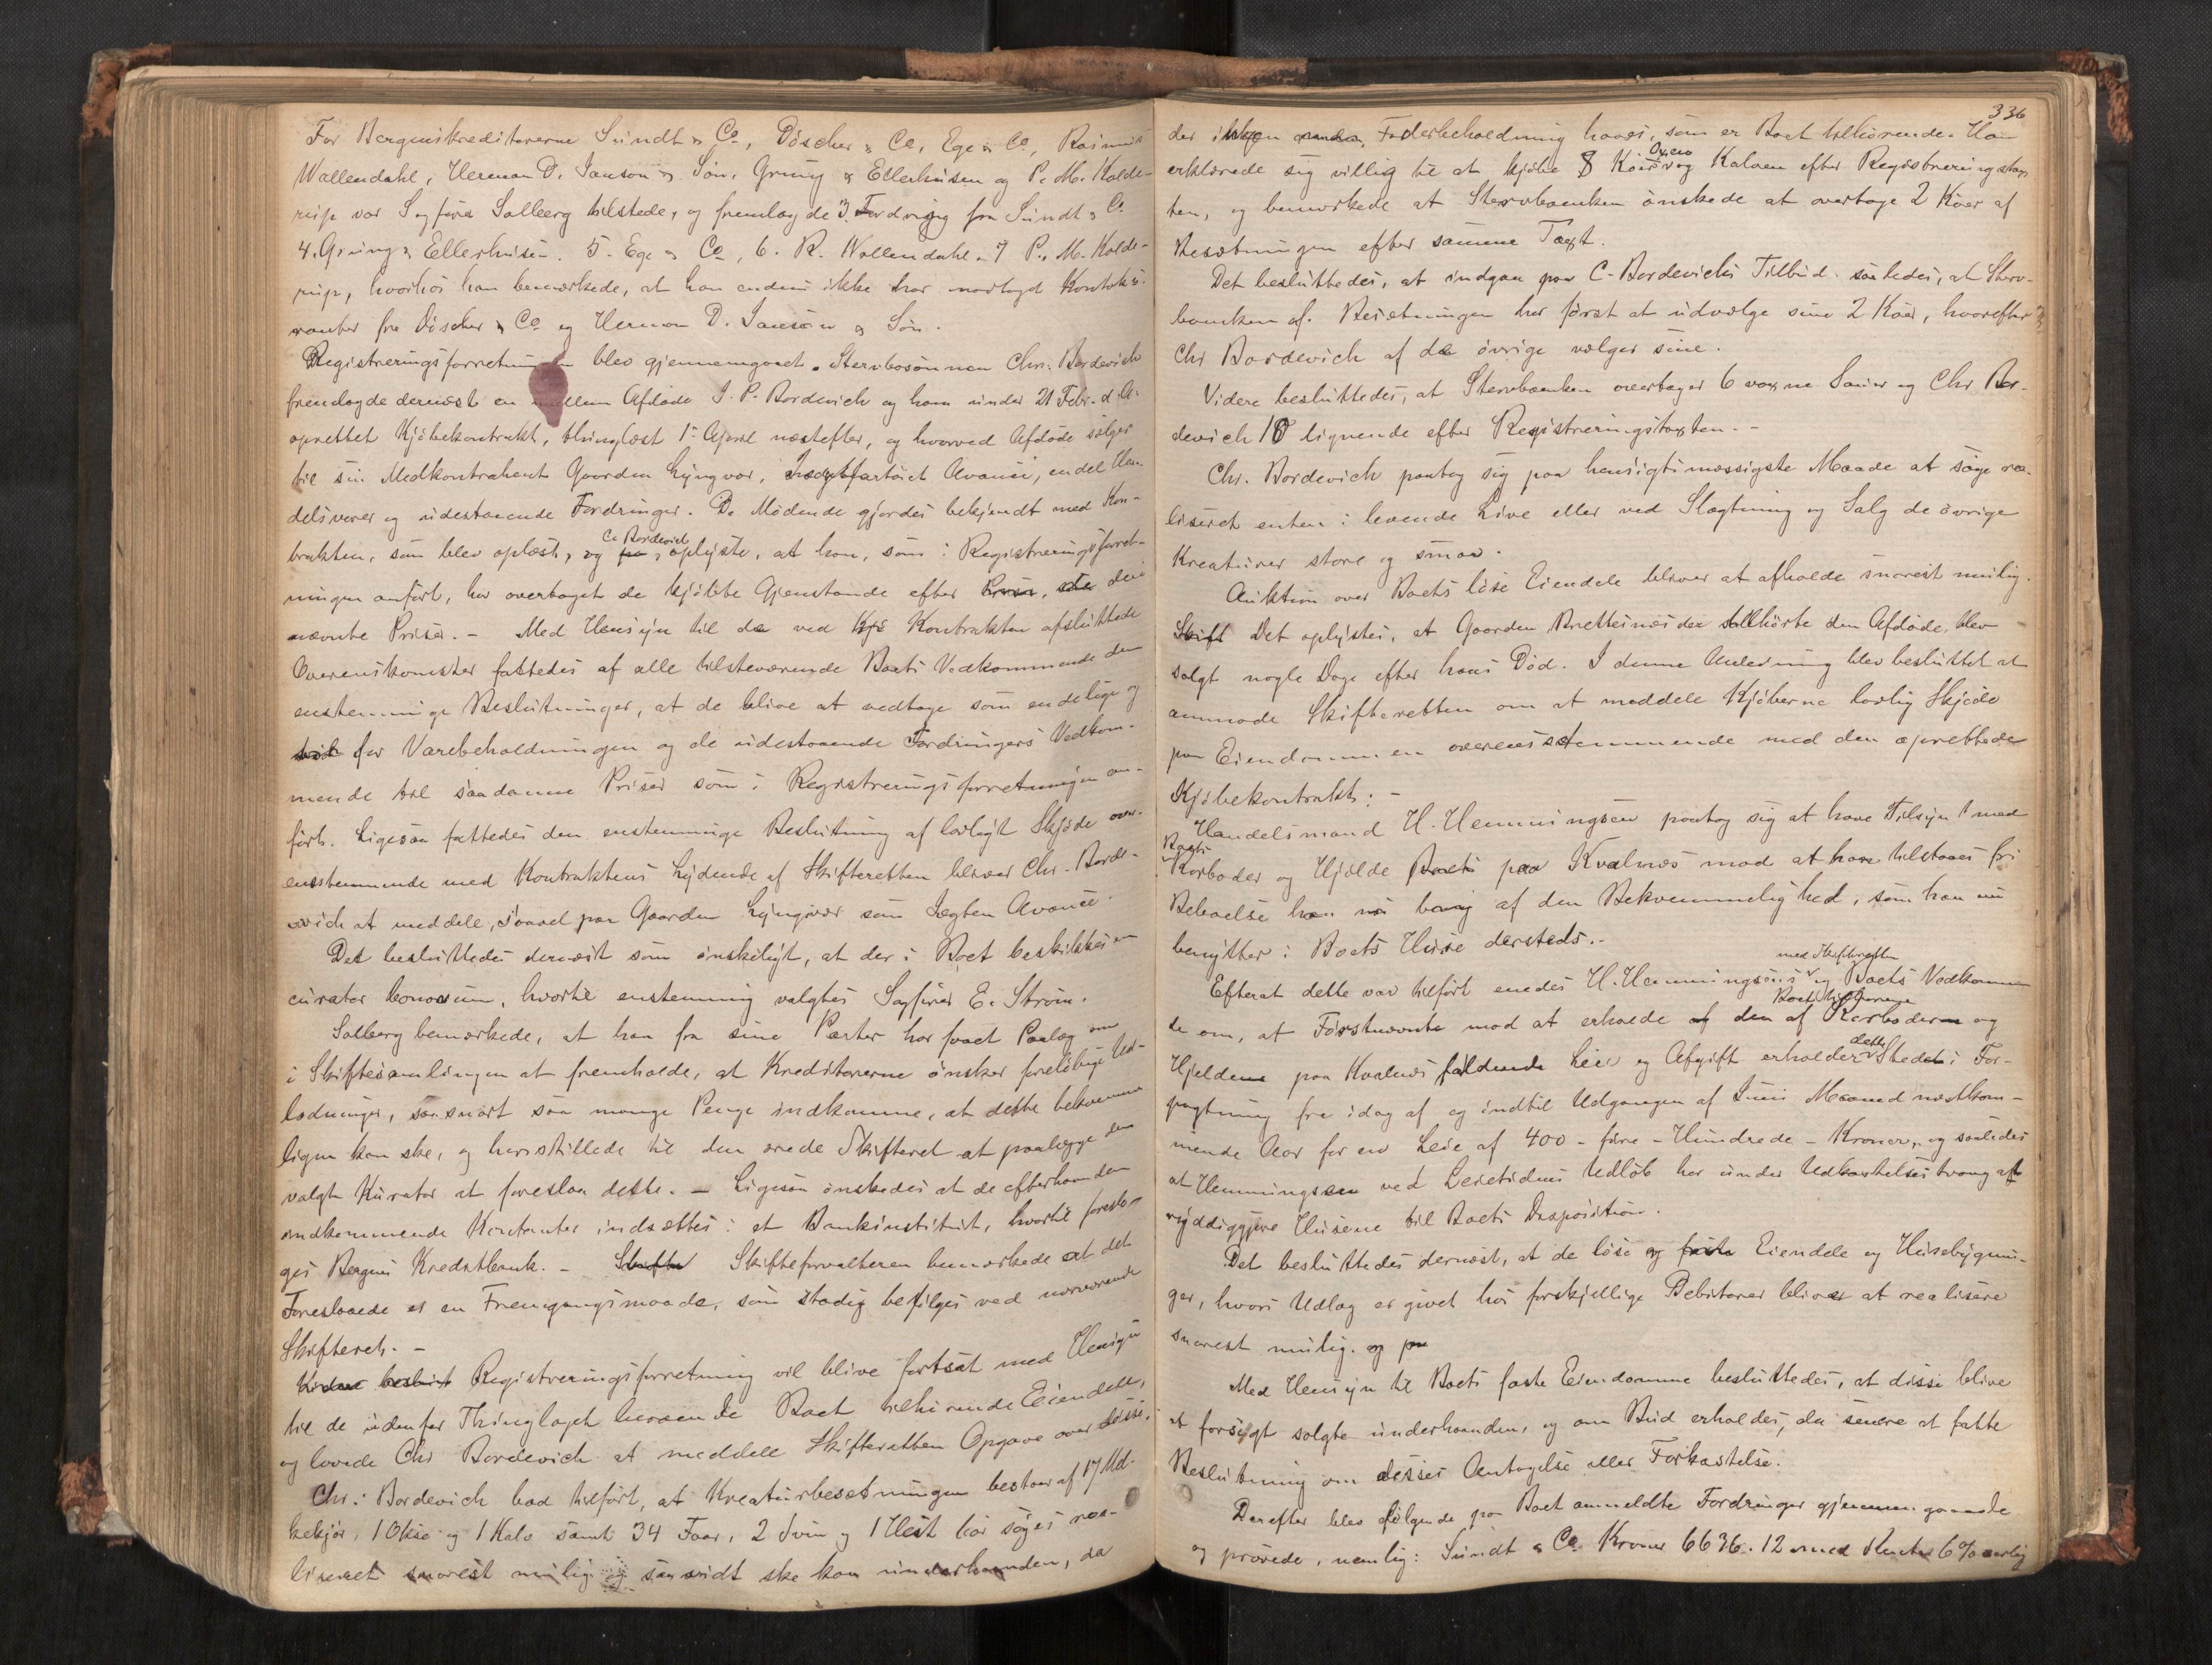 For Bergenskreditorerne Sundt & Co, Döscher & Co, Ege & Co, Rasmus
Wallendahl, Herman D. Janson & Søn, Grung & Ellerhusen og P. M. Kolde-
rup var Sagfører Solberg tilstede, og fremlagde 3. Fordring fra Sundt & Co
4. Grung & Ellerhusen. 5. Ege & Co, 6. R. Wallendahl. 7 P. M. Kolde-
rup, hvorhos han bemærkede, at han endnu ikke har modtaget Kontoku-
ranter fra Döscher & Co og Herman D. Janson & Søn.
Registreringsforretningen blev gjennemgaaet. Stervbosønnen Chr. Bordevich
fremlagde dernæst en mellem Afdøde J. P. Bordevich og ham under 21 Febr. d. A.
oprettet Kjøbekontrakt, thinglæst 1ste April næstefter, og hvorved Afdøde sælger
til sin Medkontrahent Gaarden Lyngvær, Jægtfartøiet Avance, endel Han-
delsvarer og udestaaende Fordringer. De Mødende gjordes bekjendt med Kon-
trakten, som blev oplæst, og C. Bordevich oplyste, at han, som i Registreringsforret-
ningen anført, har overtaget de kjøbte Gjenstande efter de
nævnte Priser. - Med Hensyn til de ved Kontrakten afsluttede
Overenskomster fattedes af alle tilstedeværende Boets Vedkommende den
enstemmige Beslutninger, at de blive at vedtage som endelige og
for Varebeholdningen og de udestaaende Fordringers Vedkom-
mende til saadanne Priser som i Registreringsforretningen an-
ført. Ligesaa fattedes den enstemmige Beslutning af lovligt Skjøde over-
ensstemmende med Kontraktens Lydende af Skifteretten bliver Chr. Borde-
vich at meddele, saavel paa Gaarden Lyngvær som Jægten Avance.
Det besluttedes dernæst som ønskeligt, at der i Boet beskikkes en
curator bonorum, hvortil enstemmig valgtes Sagfører E. Strøm.
Solberg bemærkede, at han fra sine Parter har faaet Paalæg om
i Skiftesamlingen at fremholde, at Kreditorerne ønsker foreløbige Ud-
lodninger, saasnart saa mange Penge indkomme, at dette bekvemme
ligen kan ske, og henstillede til den ærede Skifteret at paalægge den
valgte Kurator at foreslaa dette. - Ligesaa ønskedes at de efterhaanden
indkommende Kontanter indsættes i et Bankinstitut, hvortil foreslo-
ges Bergens Kreditbank. - Skifteforvalteren bemærkede at det
Foreslaaede er en Fremgangsmaade, som stadig befølges ved nærværende
Skifteret. -
Registreringsforretning vil blive fortsat med Hensyn
til de udenfor Thinglaget henværende Boet tilhørende Eiendele,
og lovede Chr Bordevich at meddele Skifteretten Opgave over disse.
Chr. Bordevich bad tilført, at Kreaturbesætningen bestaar af 17 Mel-
kekjør, 1 Okse og 1 Kalv samt 34 Faar, 2 Sviin og 1 Hest bør søges rea-
liseret snarest mulig og saavidt ske kan underhaanden, da
336
der ingen Foderbeholdning haves, som er Boet tilhørende. Han
erklærede sig villig til at kjøbe 8 Kør, Oxen og Kalven efter Registreringstax-
ten, og bemærkede at Stervboenken ønskede at overtage 2 Køer af
Besætningen efter samme Taxt.
Det besluttedes, at indgaa paa C. Bordevichs Tilbud saaledes, at Sterv-
boenken af Besætningen har først at udvælge sine 2 Køer, hvorefter
Chr Bordevich af de øvrige vælger sine.
Videre besluttedes, at Stervboenken overtager 6 voxne Sauer og Chr. Bor-
devich 10 lignende efter Registreringstaxten. -
Chr. Bordevich paatog sig paa hensigtsmæssigste Maade at søge rea-
liseret enten i levende Live eller ved Slagtning og Salg de øvrige
Kreaturer store og smaa.
Auktion over Boets løse Eiendele bliver at afholde snarest mulig.
Det oplystes, at Gaarden Brettesnes der tilhørte den Afdøde, blev
solgt nogle Dage efter hans Død. I denne Anledning blev besluttet at
anmode Skifteretten om at meddele Kjøberne lovlig Skjøde
paa Eiendommen overensstemmende med den oprettede
Kjøbekontrakt: -
Handelsmand H. Hemmingsen paatog sig at have Tilsyn med
Boets
Rorboder og Hjelde paa Kvalnæs mod at han tilstaaes fri
Beboelse han nu af den Bekvemmelighed, som han nu
benytter i Boets Huse dersteds. -
med Skifteretten
Efterat dette var tilført enedes H. Hemmingsen og Boets Vedkommen
de om, at Førstnævnte mod at erholde den af Boet tilhørende Rorboder og
Hjeldene paa Kvalnæs faldende Leie og Afgift erholder dette Sted i For-
pagtning fra idag af og indtil Udgangen af Juni Maaned næstkom-
mende Aar for en Leie af 400 - fire - Hundrede - Kroner, og saaledes
at Hemmingsen ved Leietidens Udløb har under Udkastelsestvang at
ryddiggjøre Husene til Boets Disposition.
Det besluttedes dernæst, at de løse og faste Eiendele og Husebygnin-
ger, hvori Udlæg er givet hos forskjellige Debitorer bliver at realisere
snarest mulig. og paa
Med Hensyn til Boets faste Eiendomme besluttedes, at disse blive
at forsøgt solgte underhaanden, og om Bud erholdes, da senere at fatte
Beslutning om disses Antagelse eller Forkastelse.
Derefter blev følgende paa Boet anmeldte Fordringer gjennemgaaede
og prøvede, nemlig: Sundt & Co Kroner 6636.12 med Renter 6 % aarlig